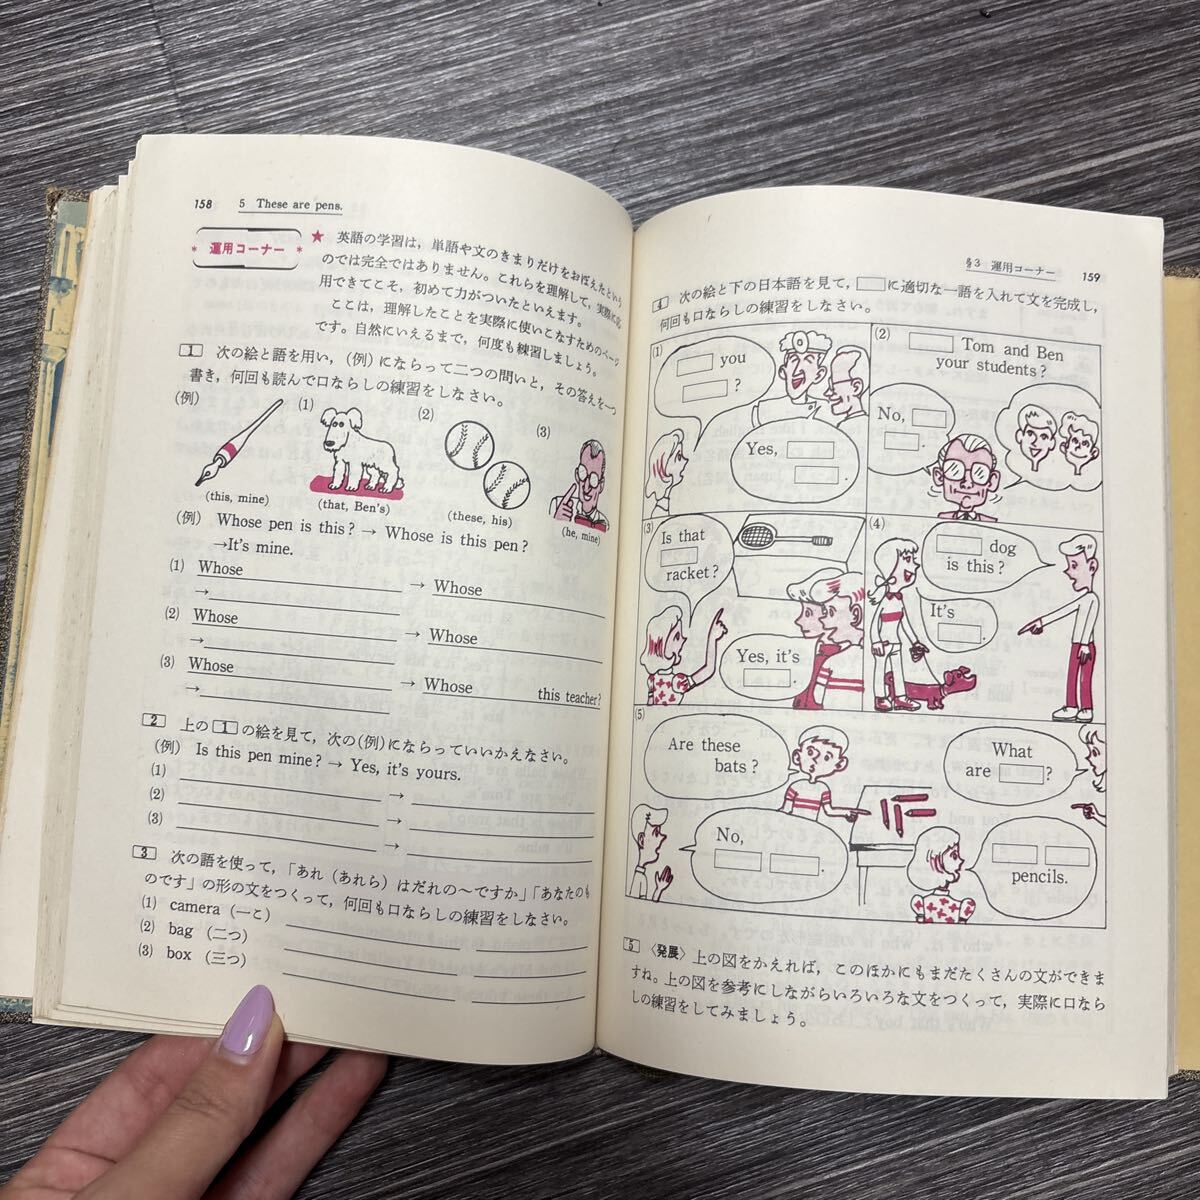 158 5 These are pens.
* 運用コーナー *
★ 英語の学習は，単語や文のきまりだけをおぼえたという
のでは完全ではありません。これらを理解して，実際に応
用できてこそ，初めて力がついたといえます。
ここは，理解したことを実際に使いこなすためのページ
です。自然にいえるまで，何度も練習しましょう。
1 次の絵と語を用い，(例)にならって二つの問いと，その答えを一つ
書き，何回も読んで口ならしの練習をしなさい。
(例) (1) (2) (3)
(this, mine) (that, Ben's) (these, his) (he, mine)
(例) Whose pen is this? → Whose is this pen?
→It's mine.
(1) Whose → Whose
→
(2) Whose → Whose
→
(3) Whose → Whose this teacher?
→
2 上の1の絵を見て，次の(例)にならっていいかえなさい。
(例) Is this pen mine? → Yes, it's yours.
(1) →
(2) →
(3) →
3 次の語を使って，「あれ（あれら）はだれの〜ですか」「あなたのも
のです」の形の文をつくって，何回も口ならしの練習をしなさい。
(1) camera (一こ)
(2) bag (二つ)
(3) box (三つ)
§3 運用コーナー 159
4 次の絵と下の日本語を見て，□に適切な一語を入れて文を完成し，
何回も口ならしの練習をしなさい。
(1)
□ you
□ ?
Yes, □
□.
(2)
□ Tom and Ben
your students?
No, □
□ □.
(3)
Is that
□
racket?
Yes, it's
□.
(4)
□ dog
is this?
It's
□.
(5)
Are these
bats?
No,
□ □.
What
are □?
□ □
pencils.
5 〈発展〉上の図をかえれば，このほかにもまだたくさんの文ができま
すね。上の図を参考にしながらいろいろな文をつくって，実際に口なら
しの練習をしてみましょう。